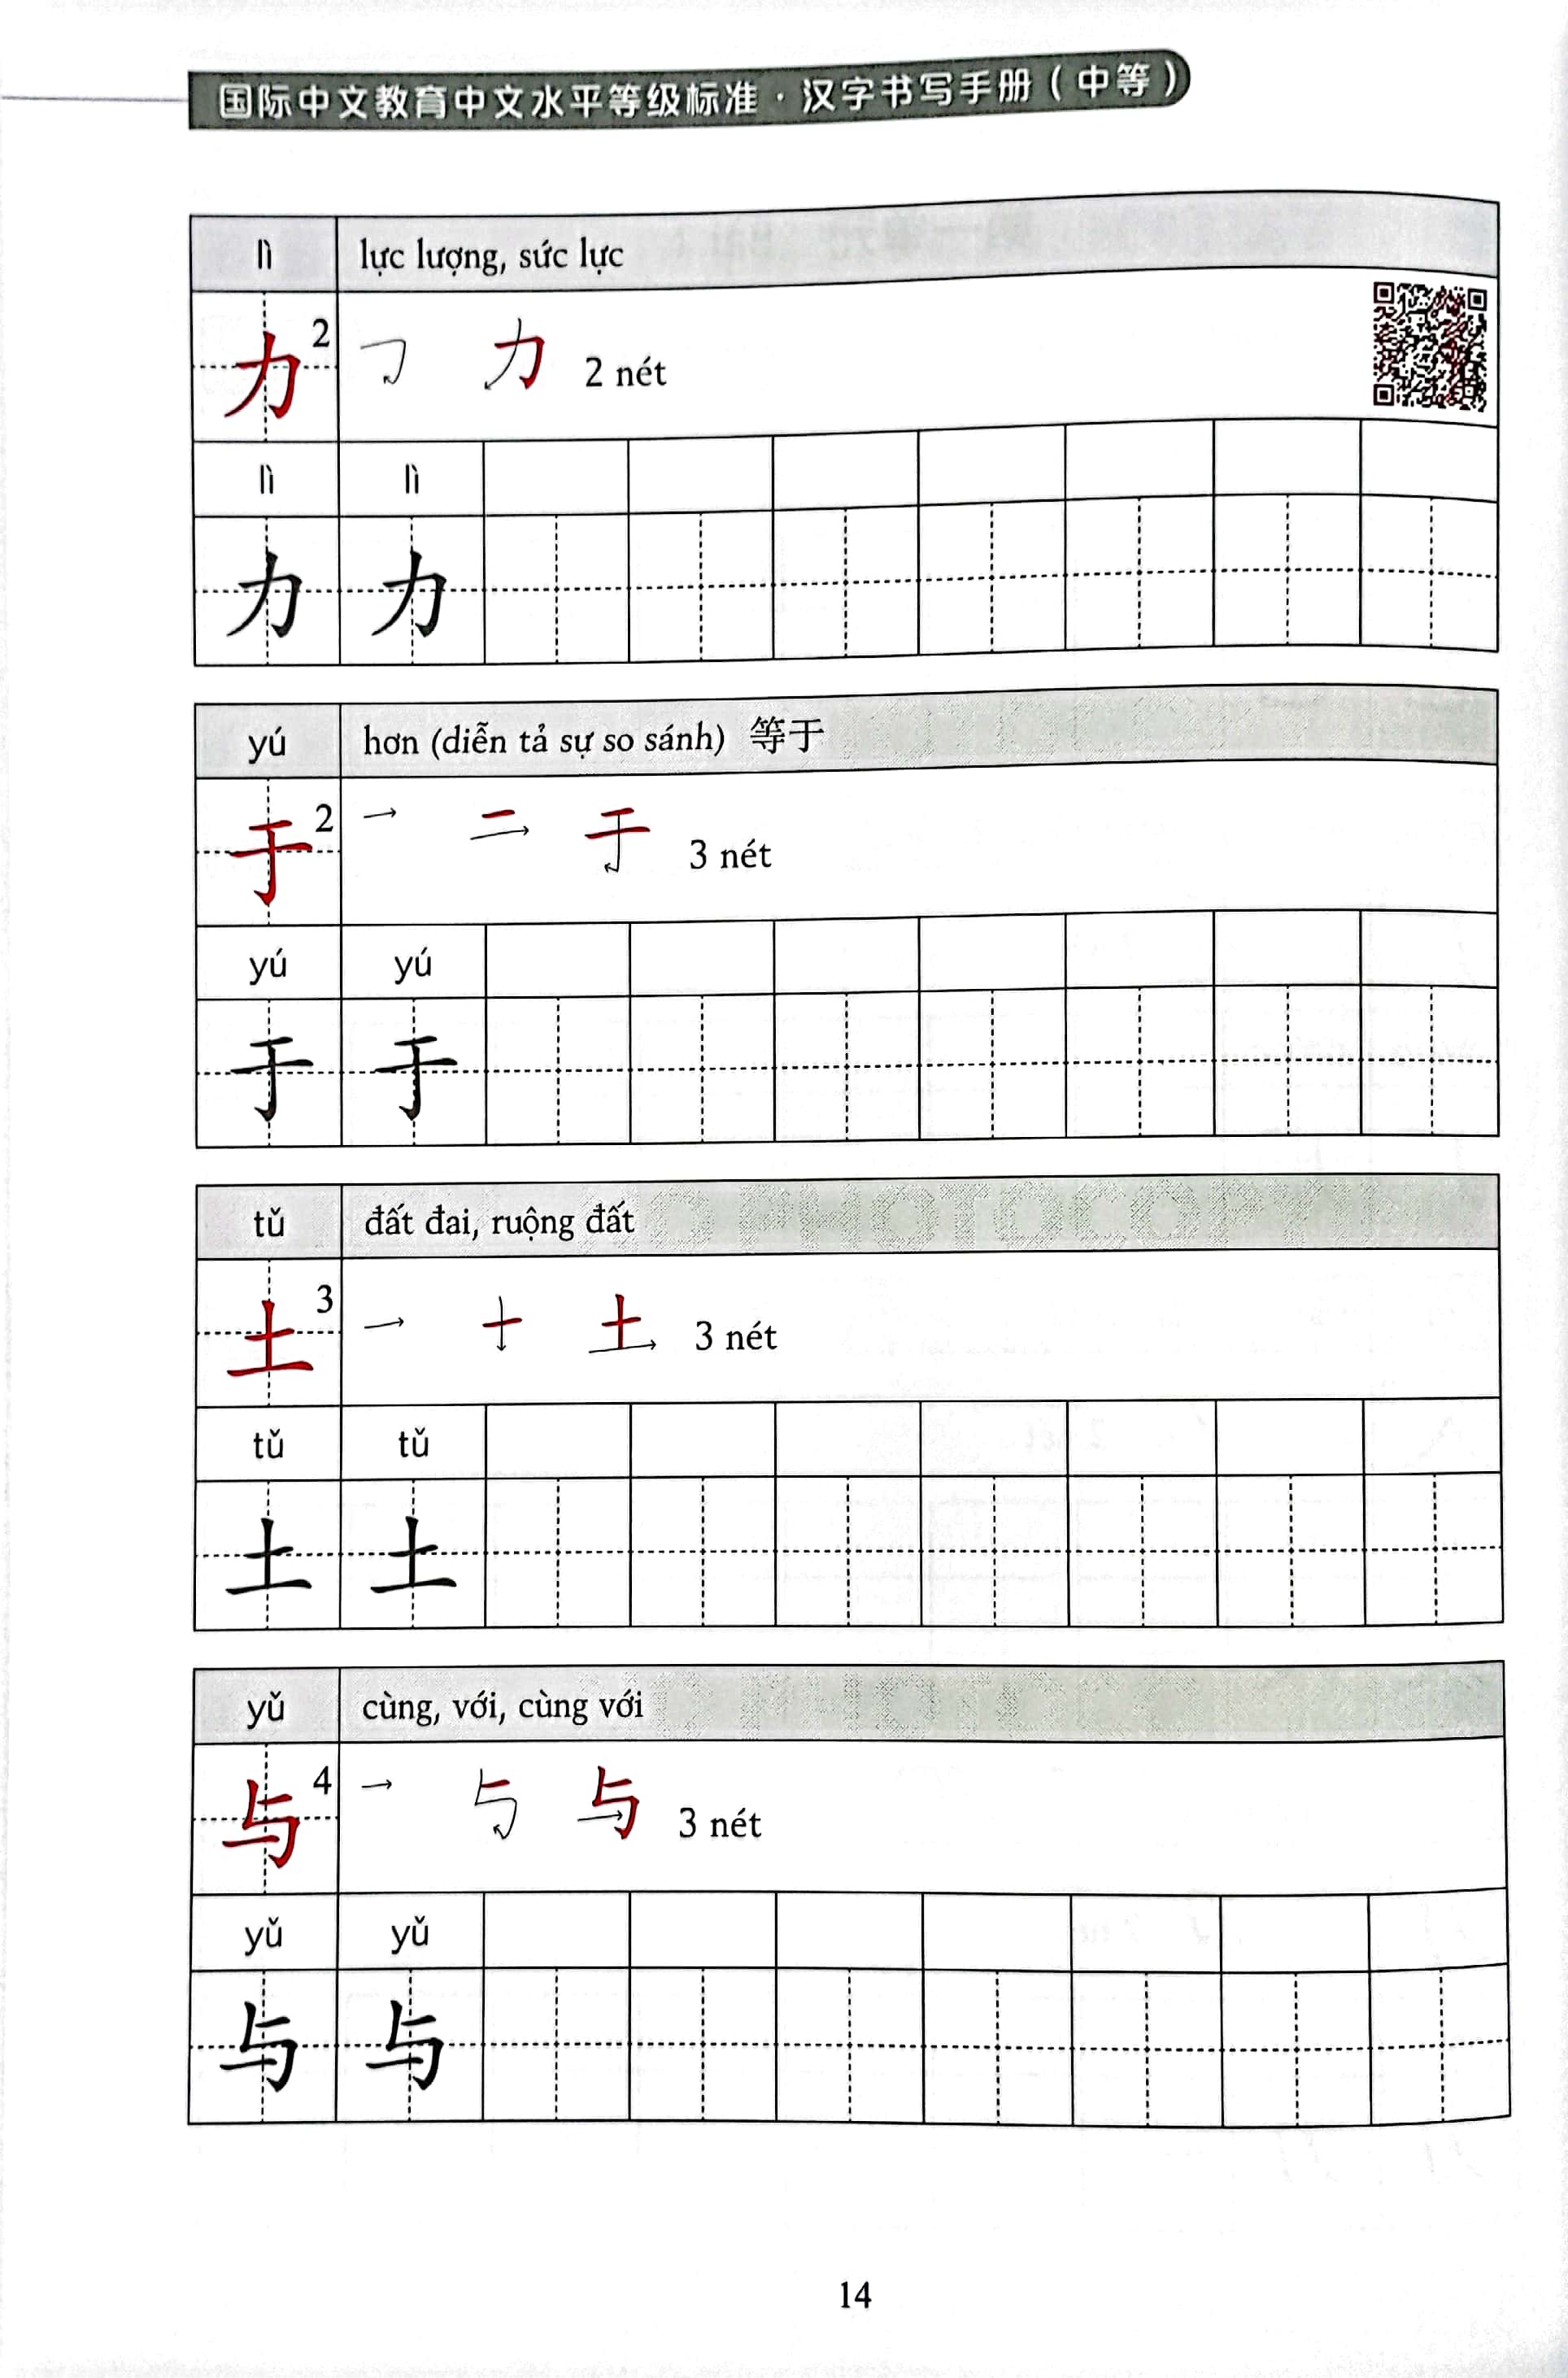 国际中文教育中文水平等级标准·汉字书写手册（中等）
lì lực lượng, sức lực
力 2 力 2 nét
lì lì
力 力
yú hơn (diễn tả sự so sánh) 等于
于 2 二 于 3 nét
yú yú
于 于
NO PHOTOCOPY
tǔ đất đai, ruộng đất
土 3 十 土 3 nét
tǔ tǔ
土 土
yǔ cùng, với, cùng với
与 4 与 与 3 nét
yǔ yǔ
与 与
14